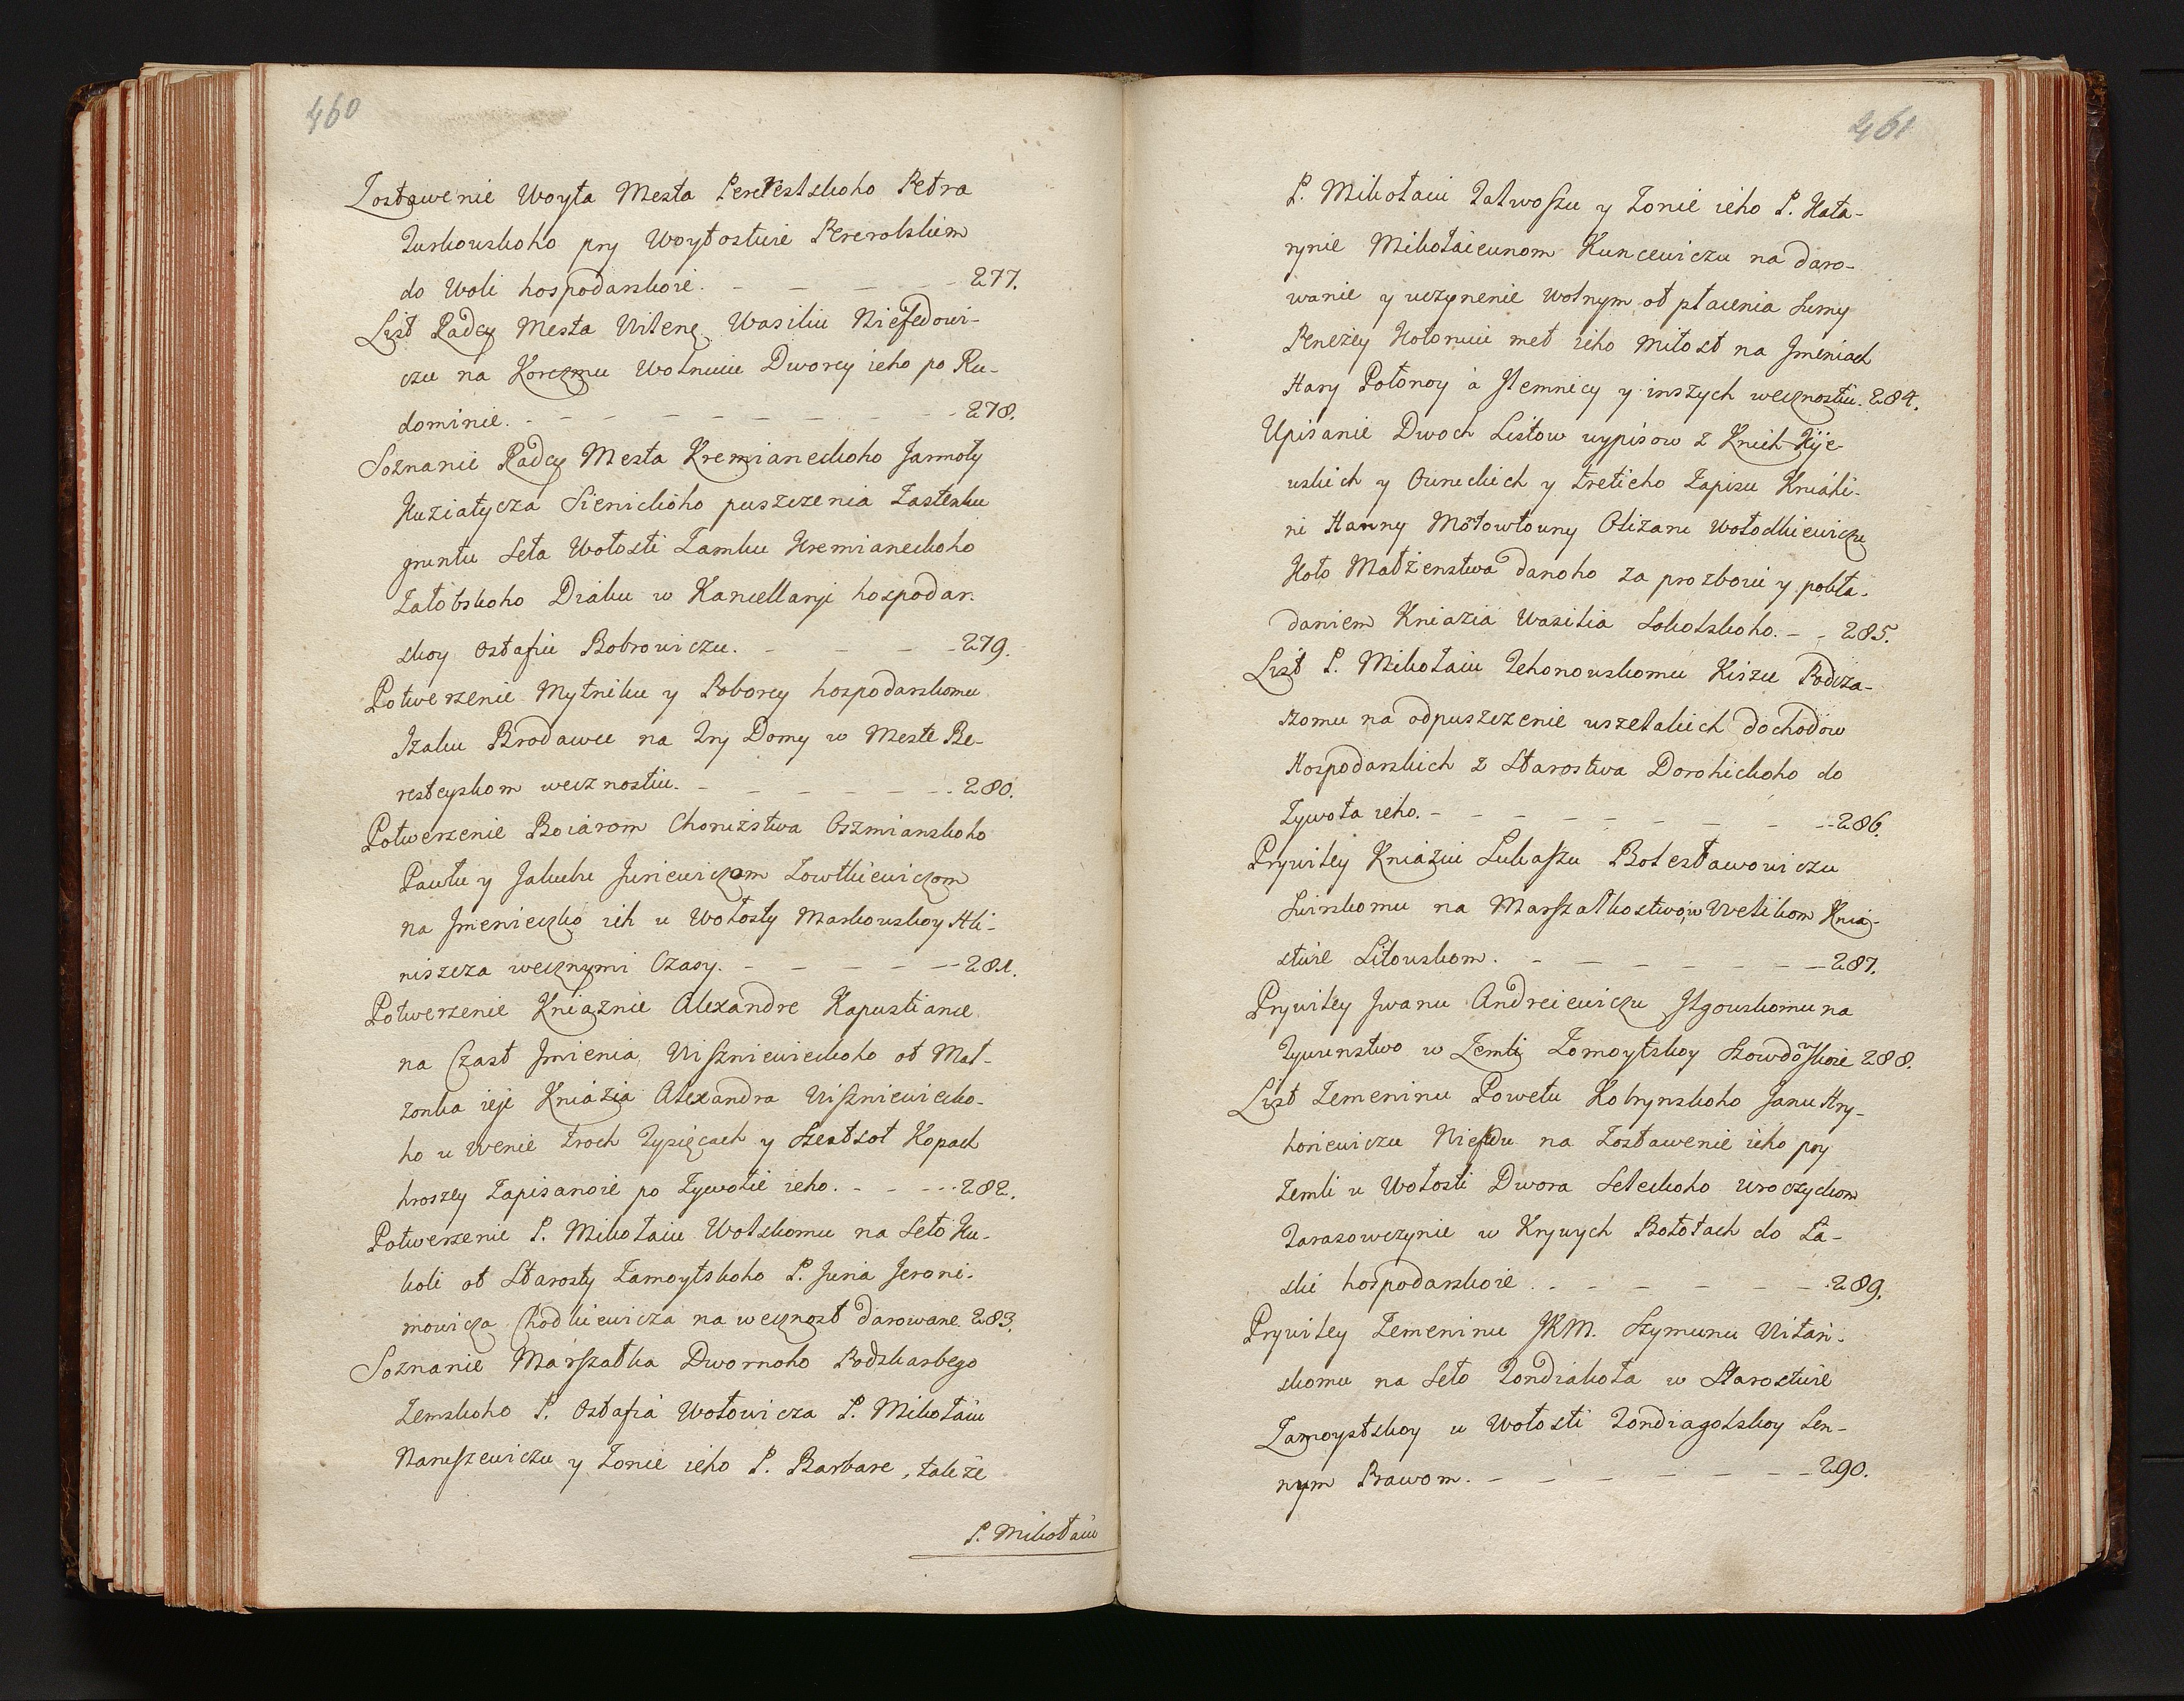 460
Zostawenie Woyta Mesta Perewalskoho Petra
Turkouskoho pry Woytostwie Pererolskiem
do Woli hospodarskoie. 277.
List Radcy Mesta Wilene Wasiliu Niefedowi-
czu na Korczmu Wolnuiu Dworcy ieho po Ru-
dominie. 278.
Soznanie Radcy Mesta Kremianeckoho Jarmoły
Huziatycza Sienickoho puszczenia Zastenku
gruntu Seła Wołosti Zamku Kremianeckoho
Załobskoho Diaku w Kancellaryi hospodar-
skoy Ostafiu Bobrowiczu. 279.
Potwerzenie Mytniku y Poborcy hospodarskomu
Izaku Brodawce na Try Domy w Meste Be-
resteyskom wecznostiu. 280.
Potwerzenie Boiarom Chorużstwa Oszmianskoho
Pawłu y Jakubu Juriewiczom Zowtkiewiczom
na Jmenieczko ich u Wołosty Markouskoy Hli-
niszcza wecznymi Czasy. 281.
Potwerzenie Kniaznie Alexandre Kapustiance
na Czast Jmienia Wiszniewieckoho ot Mał-
zonka ieje Kniazia Alexandra Wiszniewiecko-
ho u Wenie troch Tysięcach y szestsot Kopach
hroszey Zapisanoie po Zywotie ieho. 282.
Potwerzenie P. Mikołaiu Wolskomu na Seło Ku-
koli ot Starosty Zamoytskoho P. Juria Jeroni-
mowicza Chodkiewicza na wecznost darowane 283.
Soznanie Marszałka Dwornoho Podskarbego
Zemskoho P. Ostafia Wołowicza P. Mikołaiu
Naruszewiczu y Zonie ieho P. Barbare, takze
P. Mikołaiu
461
P. Mikołaiu Talwoszu y Zonie ieho P. Kata-
rynie Mikołaieunom Kuncewiczu na daro-
wanie y uczynenie wolnym ot płacenia Sumy
Penezey Kotoruiu meł ieho miłost na Jmeniach
Hary Połonoy a Jłemnicy y inszych wecznostiu. 284.
Upisanie Dwoch Listow wypisow z Knich Kije-
uskich y Ouruckich y tretieho Zapisu Kniahi-
ni Hanny Mołowłouny Olizaru Wołodkiewiczu
Koło Małżenstwa danoho za prozboiu y pokła-
daniem Kniazia Wasilia Sokolskoho. 285.
List P. Mikołaiu Tehonouskomu Kiszu Podcza-
szomu na odpuszczenie uszelakich dochodow
Hospodarskich z Starostwa Dorohickoho do
Zywota ieho. 286.
Prywiley Kniaziu Lukaszu Bolesławowiczu
Swirskomu na Marszałkostwo w Welikom Knia-
stwie Litouskom. 287.
Prywiley Jwanu Andreiewiczu Jlgouskomu na
Tywunstwo w Zemli Zomoytskoy Szowdowskoie 288.
List Zemeninu Powetu Kobrynskoho Janu Hry-
horiewiczu Niefedu na Zostawenie ieho pry
Zemli u Wołosti Dwora Seleckoho uroczyskom
Tarasowczynie w Krywych Bołotach do Ła-
ski hospodarskoie. 289.
Prywiley Zemeninu JKM. Szymunu Witań-
skomu na Seło Tondiakoła w Starostwie
Zamoystskoy u Wołosti Tondiagolskoy Len-
nym Prawom. 290.